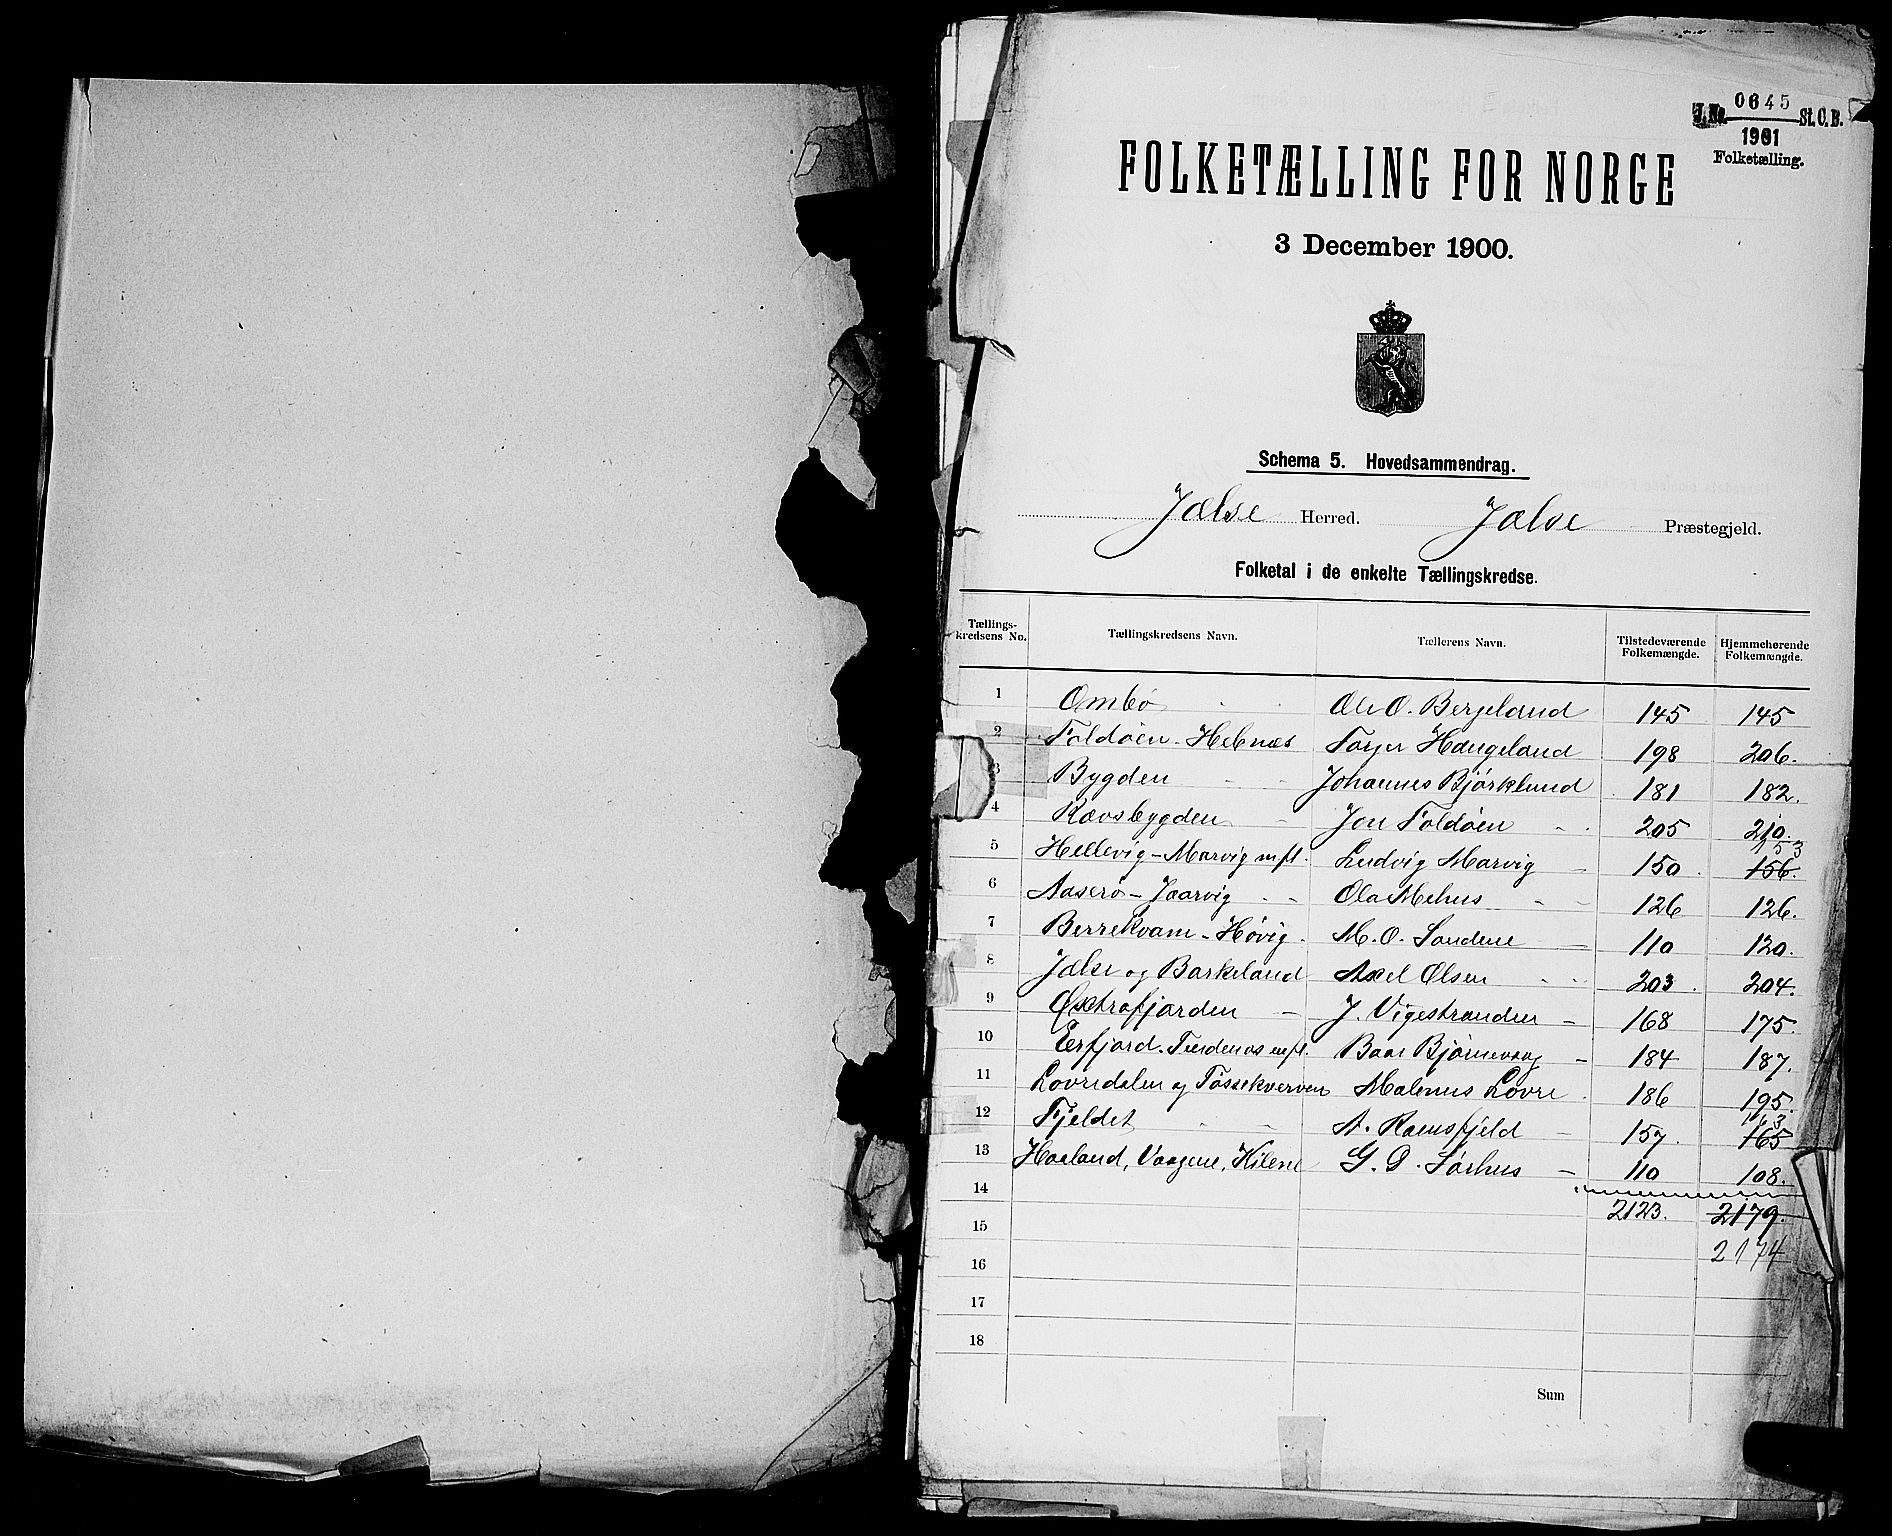 J.No. 0645 St.C.B.
1901
Folketælling.
FOLKETÆLLING FOR NORGE
3 December 1900.
Schema 5. Hovedsammendrag.
Jælse Herred. Jælse Præstegjeld.
Folketal i de enkelte Tællingskredse.
Tællings-kredsens No. Tællingskredsens Navn. Tællerens Navn. Tilstedeværende Folkemængde. Hjemmehørende Folkemængde.
1 Ombo Ole O. Bergeland 145 145
2 Foldøen - Hebnes Torger Haugeland 198 206.
3 Bygden Johannes Bjørklund 181 182.
4 Rævsbygden Jon Foldøen 205 210.
5 Hellevig - Marvig mfl. Ludvig Marvig 150 156. 153
6 Aaserø - Jaarvig Ola Mehus 126 126.
7 Berrekvam - Høvig M. O. Sandene 110 120.
8 Jælse og Barkeland Axel Olsen 203 204.
9 Øxtrafjorden J. Vigestranden 168 175.
10 Erfjord. Tindenes mfl. Baar Bjørnevaag 184 187.
11 Lovredalen og Tøssekverven Malenus Lovre 186 195.
12 Fjeldet A. Ramsfjeld 157. 165 163
13 Haaland, Vaagene, Kilene G. D. Sørhus 110 108.
14
2123. 2179.
15
2174
16
17
18
Sum